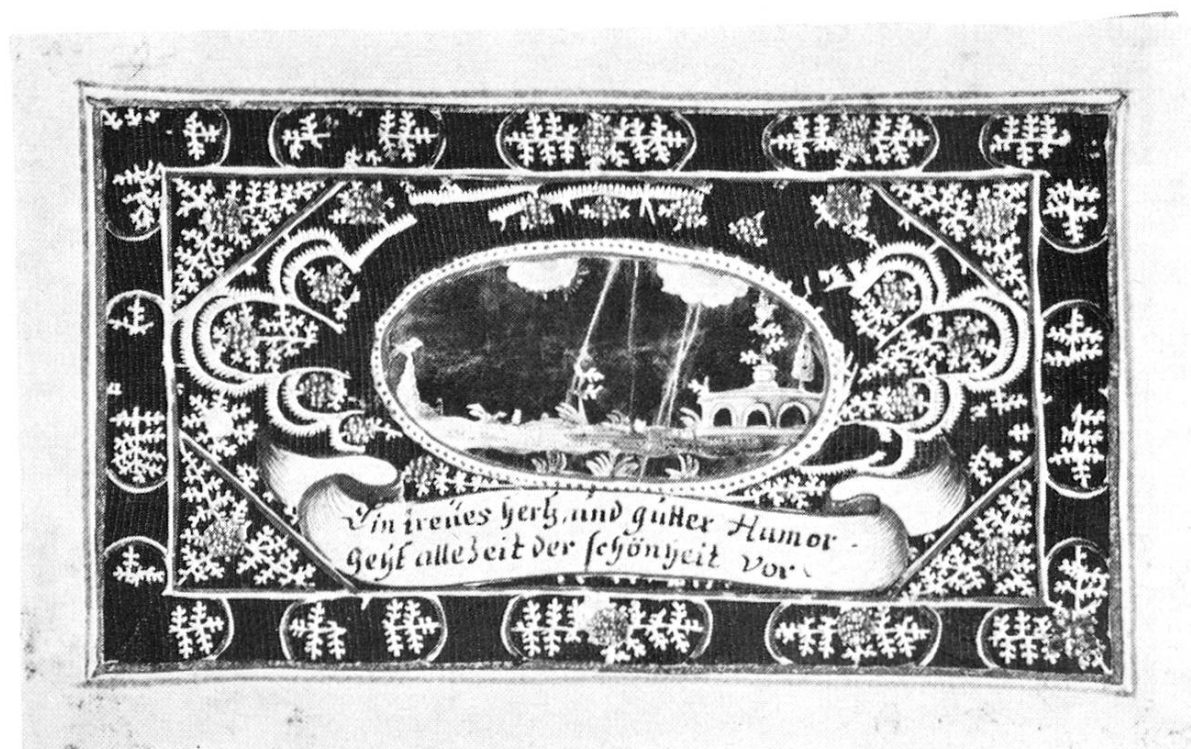 Ein treües Hertz, und gutter Humor.
Geht alle Zeit der schönheit vor.